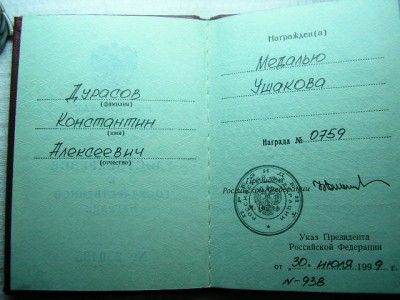 Дурасов
(фамилия)
Константин
(имя)
Алексеевич
(отчество)
Награжден(а)
Медалью
Ушакова
Награда № 0759
Президент
Российской Федерации
Указ Президента
Российской Федерации
от 30 июля 1999 г.
N-938